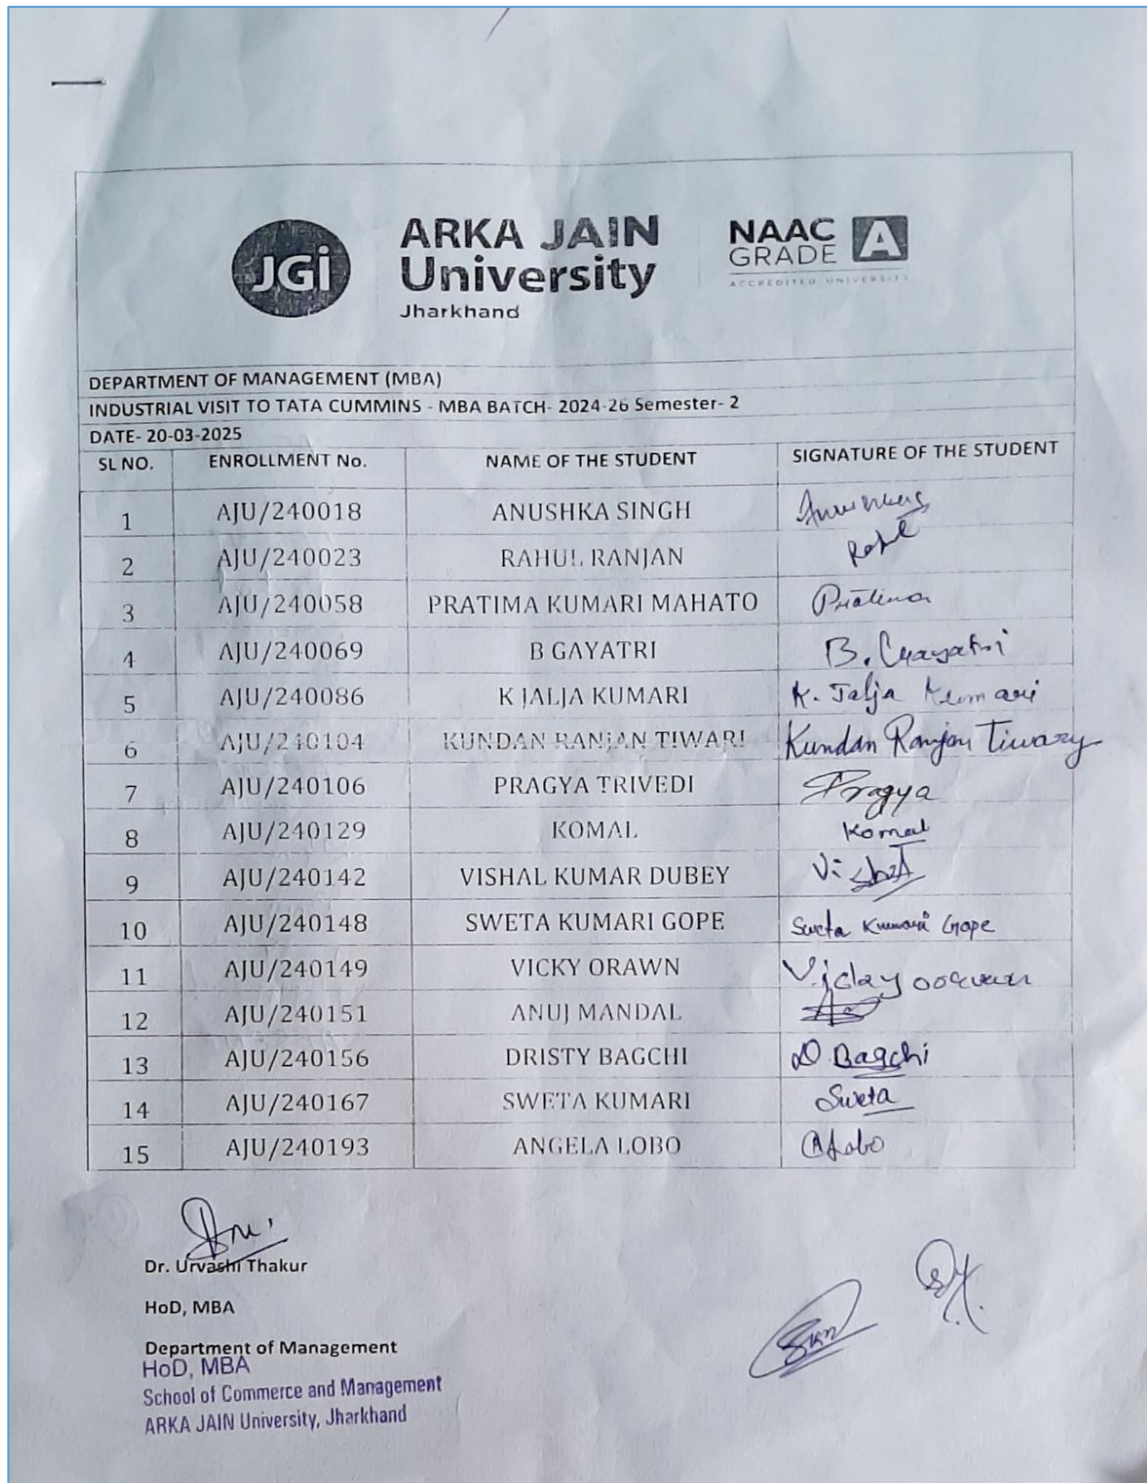 JGi
ARKA JAIN
University
Jharkhand
NAAC
GRADE A
ACCREDITED UNIVERSITY
DEPARTMENT OF MANAGEMENT (MBA)
INDUSTRIAL VISIT TO TATA CUMMINS - MBA BATCH- 2024-26 Semester- 2
DATE- 20-03-2025
SL NO. ENROLLMENT No. NAME OF THE STUDENT SIGNATURE OF THE STUDENT
1 AJU/240018 ANUSHKA SINGH
2 AJU/240023 RAHUL RANJAN
3 AJU/240058 PRATIMA KUMARI MAHATO Pratima
4 AJU/240069 B GAYATRI B. Gayatri
5 AJU/240086 K JALJA KUMARI K. Jalja Kumari
6 AJU/240104 KUNDAN RANJAN TIWARI Kundan Ranjan Tiwary
7 AJU/240106 PRAGYA TRIVEDI Pragya
8 AJU/240129 KOMAL Komal
9 AJU/240142 VISHAL KUMAR DUBEY
10 AJU/240148 SWETA KUMARI GOPE Sweta Kumari Gope
11 AJU/240149 VICKY ORAWN
12 AJU/240151 ANUJ MANDAL
13 AJU/240156 DRISTY BAGCHI D Bagchi
14 AJU/240167 SWETA KUMARI Sweta
15 AJU/240193 ANGELA LOBO ALobo
Dr. Urvashi Thakur
HoD, MBA
Department of Management
HoD, MBA
School of Commerce and Management
ARKA JAIN University, Jharkhand